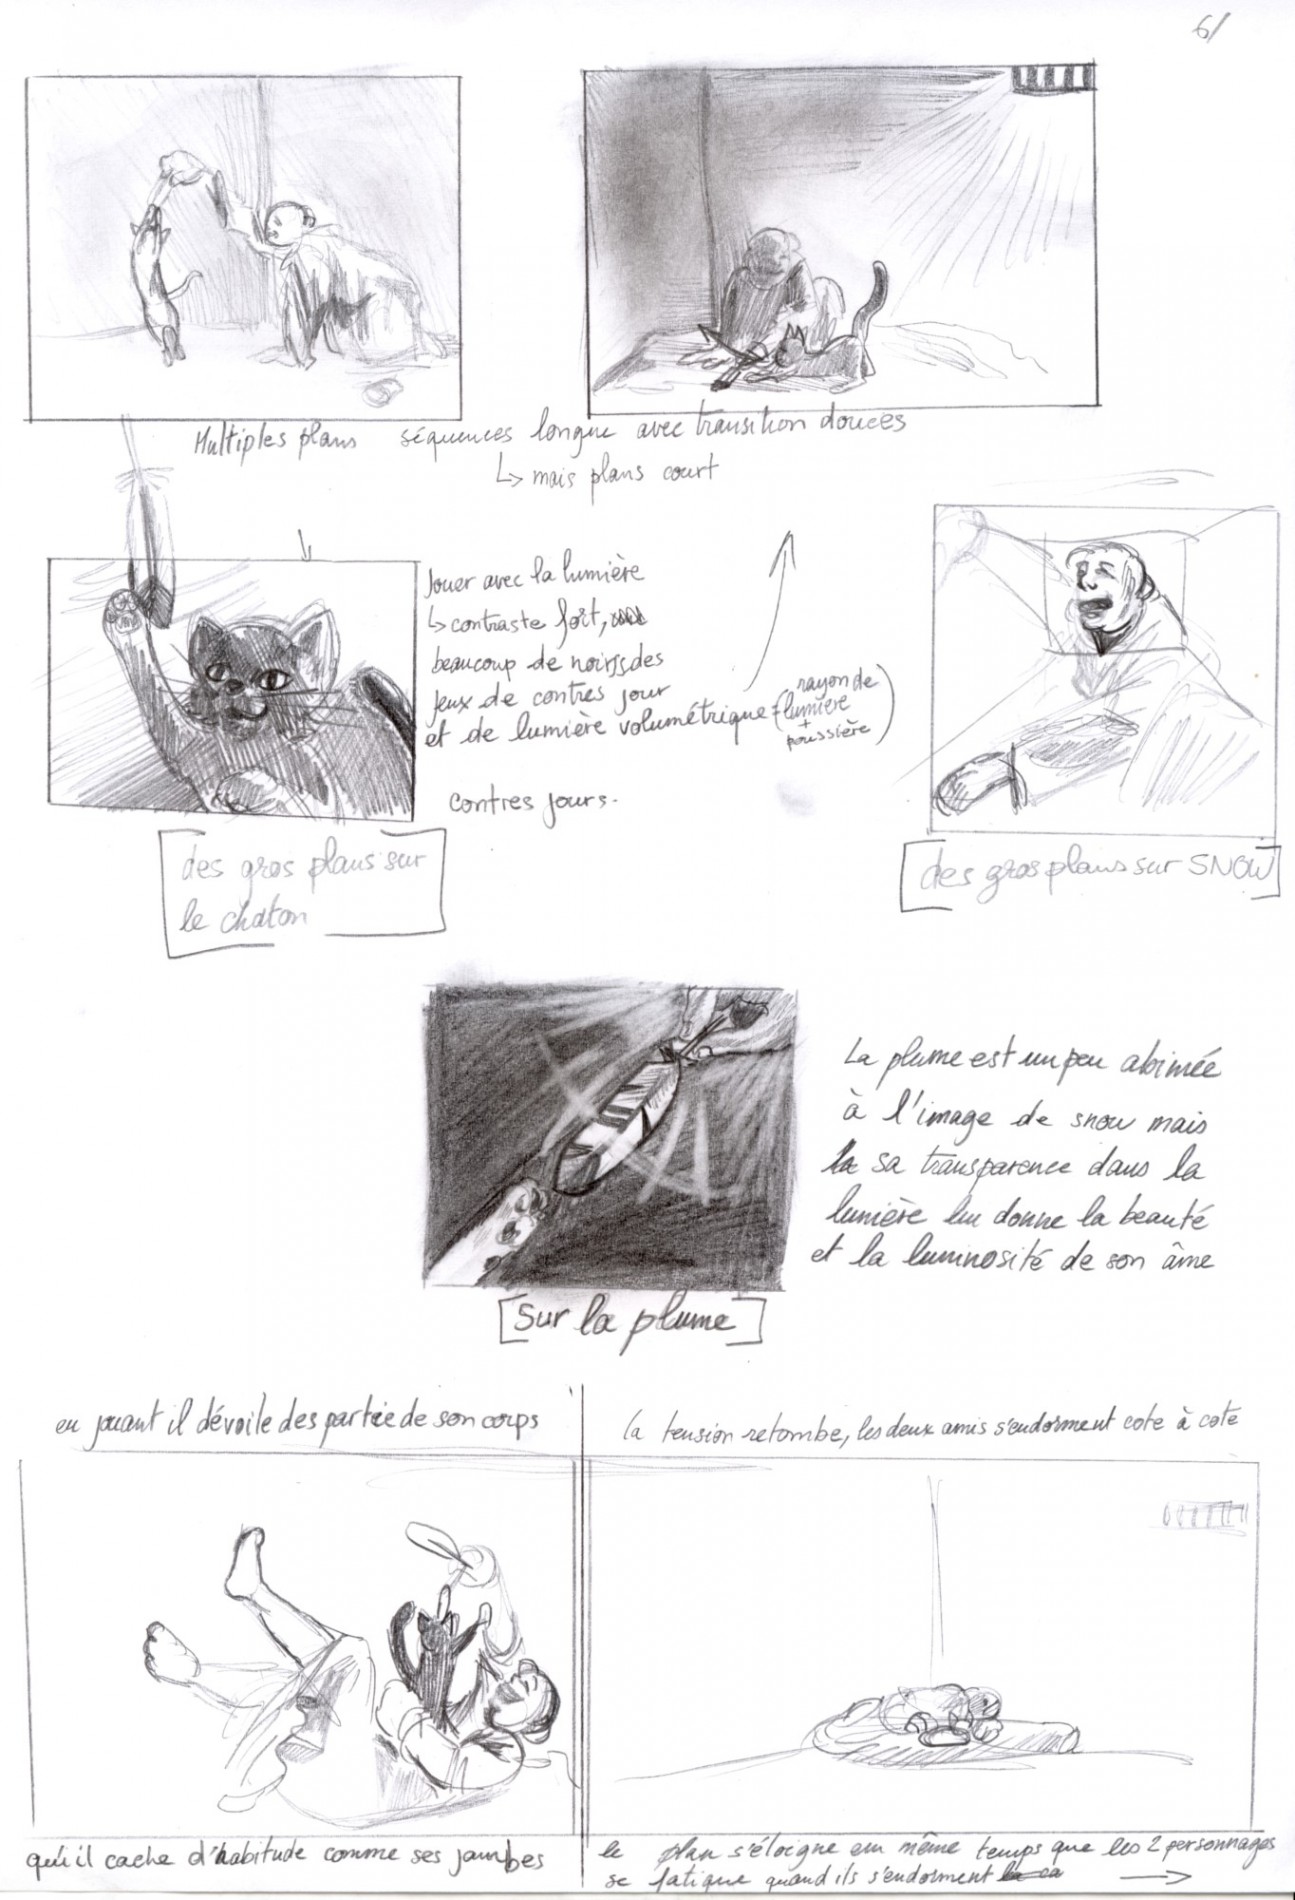 6/
Multiples plans séquences longue avec transition douces
↳ mais plans court
Jouer avec la lumière
↳ contraste fort,
beaucoup de noirs, des
jeux de contres jour
et de lumière volumétrique = (rayon de
lumière
+
poussière)
contres jours.
[des gros plans sur
le chaton]
[des gros plans sur SNOW]
La plume est un peu abimée
à l'image de snow mais
sa transparence dans la
lumière lui donne la beauté
et la luminosité de son âme
[sur la plume]
en jouant il dévoile des partie de son corps
qu'il cache d'habitude comme ses jambes
la tension retombe, les deux amis s'endorment cote à cote
le plan s'éloigne em même temps que les 2 personnages
se fatigue quand ils s'endorment →